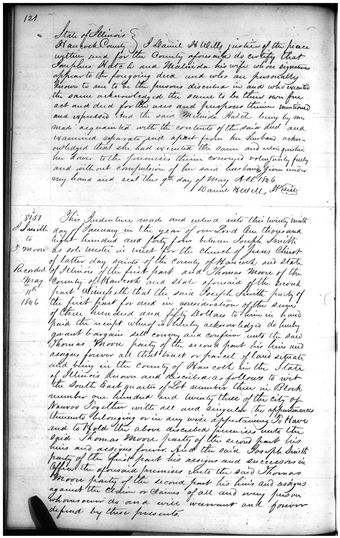 124
State of Illinois }
Hancock County } I Daniel H Wells justice of the peace
within and for the County aforesaid do certify that
Josephus Hatch and Malinda his wife whose signatures
appear to the foregoing deed and who are personally
known to me to be the persons described in and who executed
the same acknowledged the same to be their own free
act and deed for the uses and purposes therein mentioned
and expressed And the said Melinda Hatch being by me
made acquainted with the contents of the said deed and
examined separate and apart from her husband acknow
ledged that she had executed the same and relinquished
her dower to the premises therein conveyed voluntarily freely
and without compulsion of her said husband given under
my hand and seal this 9th day of May A.D. 1846
Daniel H Wells
J Smith
to
T Moore
Recorded
May
1846
This Indenture made and entered into this twenty ninth
day of January in the year of our Lord one thousand
eight hundred and forty four between Joseph Smith
as sole trustee in trust for the church of Jesus Christ
of latter day saints of the County of Hancock and State
of Illinois of the first part and Thomas Moore of the
County of Hancock and State aforesaid of the second
part Witnesseth that the said Joseph Smith party of
the first part for and in consideration of the sum
of three hundred and fifty dollars to him in hand
paid the receipt whereof is hereby acknowledged do hereby
grant bargain sell convey and confirm unto the said
Thomas Moore party of the second part his heirs and
assigns forever all that tract or parcel of land situate
and being in the County of Hancock in the State
of Illinois known and described as follows to wit
the South East quarter of Lot number three in Block
number one hundred and twenty three of the city of
Nauvoo Together with all and singular the appurtenances
thereunto belonging or in any wise appertaining To Have
and to Hold the above described premises unto the
said Thomas Moore party of the second part his
heirs and assigns forever And the said Joseph Smith
party of the first part his assigns and successors in
Office the aforesaid premises unto the said Thomas
Moore party of the second part his heirs and assigns
against the claim or claims of all and every person
whomsoever do and will warrant and forever
defend by these presents